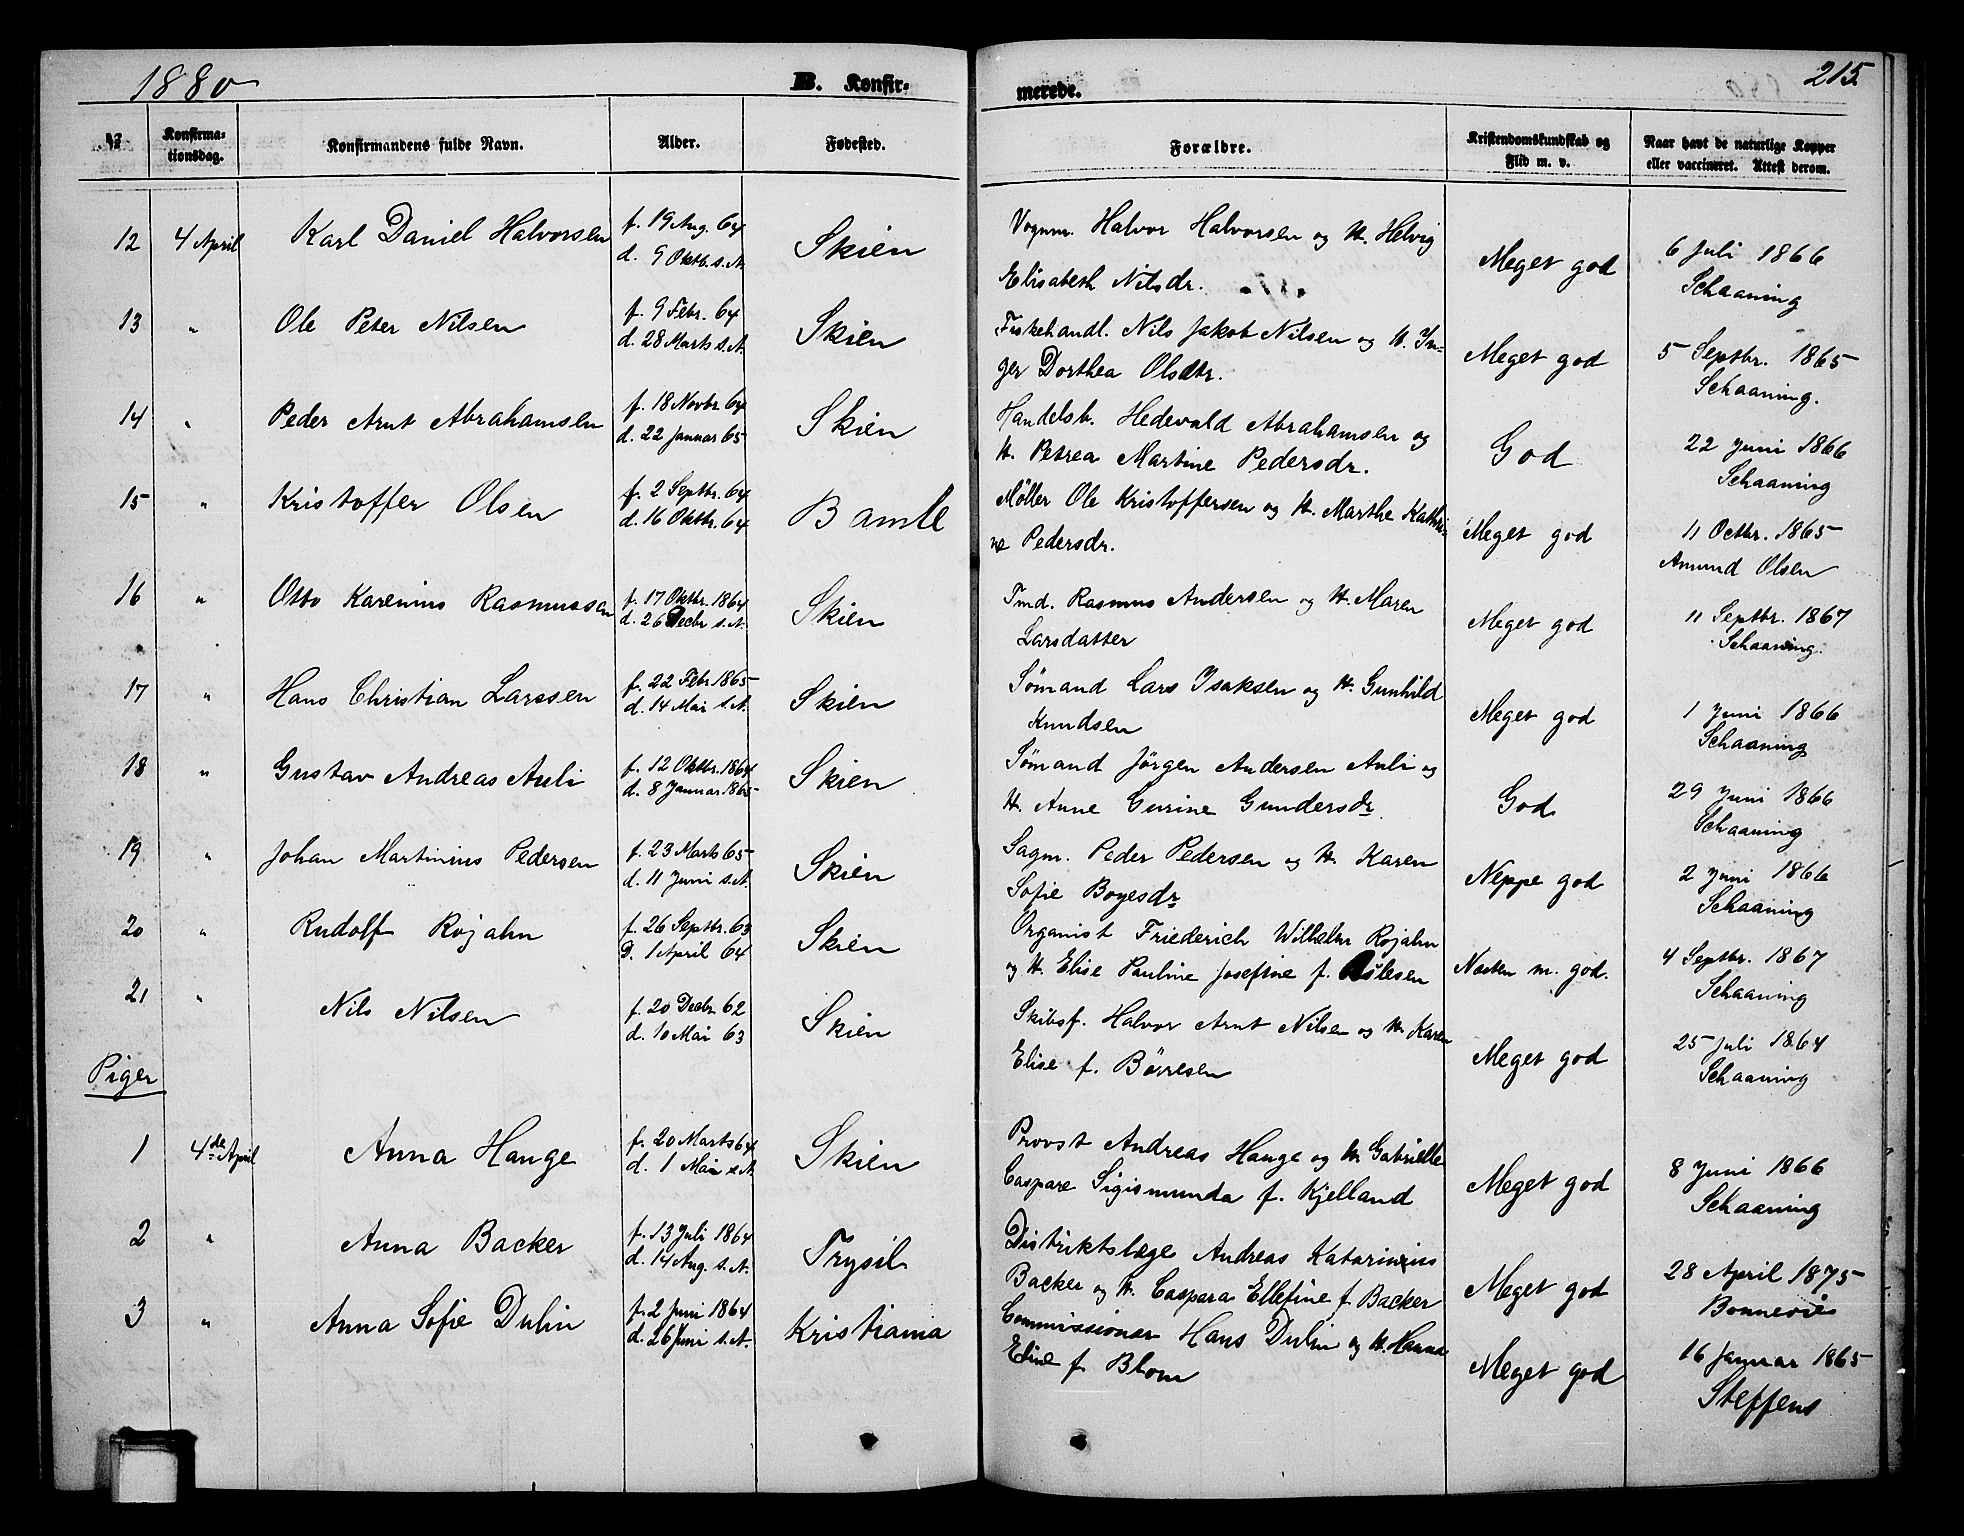 1880
B. Konfir-
merede.
215
№
Konfirma-
tionsdag.
Konfirmandens fulde Navn.
Alder.
Fødested.
Forældre.
Kristendomskundskab og
Flid m. v.
Naar havt de naturlige Kopper
eller vaccineret. Attest derom.
12 4 April Karl Daniel Halvorsen f. 19 Aug. 64 Skien Vognm. Halvor Halvorsen og H. Helvig Meget god 6 Juli 1866
d. 9 Oktb. s. A. Elisabeth Nilsdr. Schaaning
13 " Ole Peter Nilsen f. 9 Febr. 64 Skien Fiskehandl. Nils Jakob Nilsen og H. In- Meget god 5 Septbr. 1865
d. 28 Marts s. A. ger Dorthea Olsdtr. Schaaning.
14 " Peder Arnt Abrahamsen f. 18 Novbr. 64 Skien Handelsb. Hedevald Abrahamsen og God 22 Juni 1866
d. 22 Januar 65 H. Petrea Martine Pedersdr. Schaaning
15 " Kristoffer Olsen f. 2 Septbr. 64 Bamle Møller Ole Kristoffersen og H. Marthe Kathri- Meget god 11 Octbr. 1865
d. 16 Oktbr. 64 ne Pedersdr. Amund Olsen
16 " Otto Karenius Rasmussen f. 17 Oktbr. 1864 Skien Tmd. Rasmus Andersen og H. Maren Meget god 11 Septbr. 1867
d. 26 Decbr s. A. Larsdatter Schaaning.
17 " Hans Christian Larssen f. 22 Febr. 1865 Skien Sømand Lars Isaksen og H. Gunhild Meget god 1 Juni 1866
d. 14 Mai s. A. Knudsen Schaaning
18 " Gustav Andreas Auli f. 12 Oktbr. 1864 Skien Sømand Jørgen Andersen Auli og God 29 Juni 1866
d. 8 Januar 1865 H. Anne Gurine Gundersdr Schaaning
19 " Johan Martinius Pedersen f. 23 Marts 65 Skien Sagm. Peder Pedersen og H. Karen Neppe god 2 Juni 1866
d. 11 Juni s. A. Sofie Boyesdr Schaaning
20 " Rudolf Rojahn f. 26 Septbr. 63 Skien Organist Friederich Wilhelm Rojahn Næsten m. god. 4 Septbr. 1867
D. 1 April 64 og H. Elise Pauline Josefine f. Aslesen Schaaning
21 " Nils Nilsen f. 20 Decbr 62 Skien Skibsf. Halvor Arnt Nilsen og H. Karen Meget god 25 Juli 1864
d. 10 Mai 63 Elise f. Børresen Schaaning
Piger
1 4de April Anna Hauge f. 20 Marts 64 Skien Provst Andreas Hauge og H. Gabrielle Meget god 8 Juni 1866
d. 1 Mai s. A. Caspare Sigismunda f. Kjelland Schaaning
2 " Anna Backer f. 13 Juli 1864 Trysil Distriktslæge Andreas Katarinus Meget god 28 April 1875
d. 14 Aug. s. A. Backer og H. Caspara Ellefine f Backer Bonnevie
3 " Anna Sofie Dulin f. 2 Juni 1864 Kristiania Commissionær Hans Dulin og H. Hanna Meget god 16 Januar 1865
d. 26 Juni s. A. Eline f. Blom Steffens